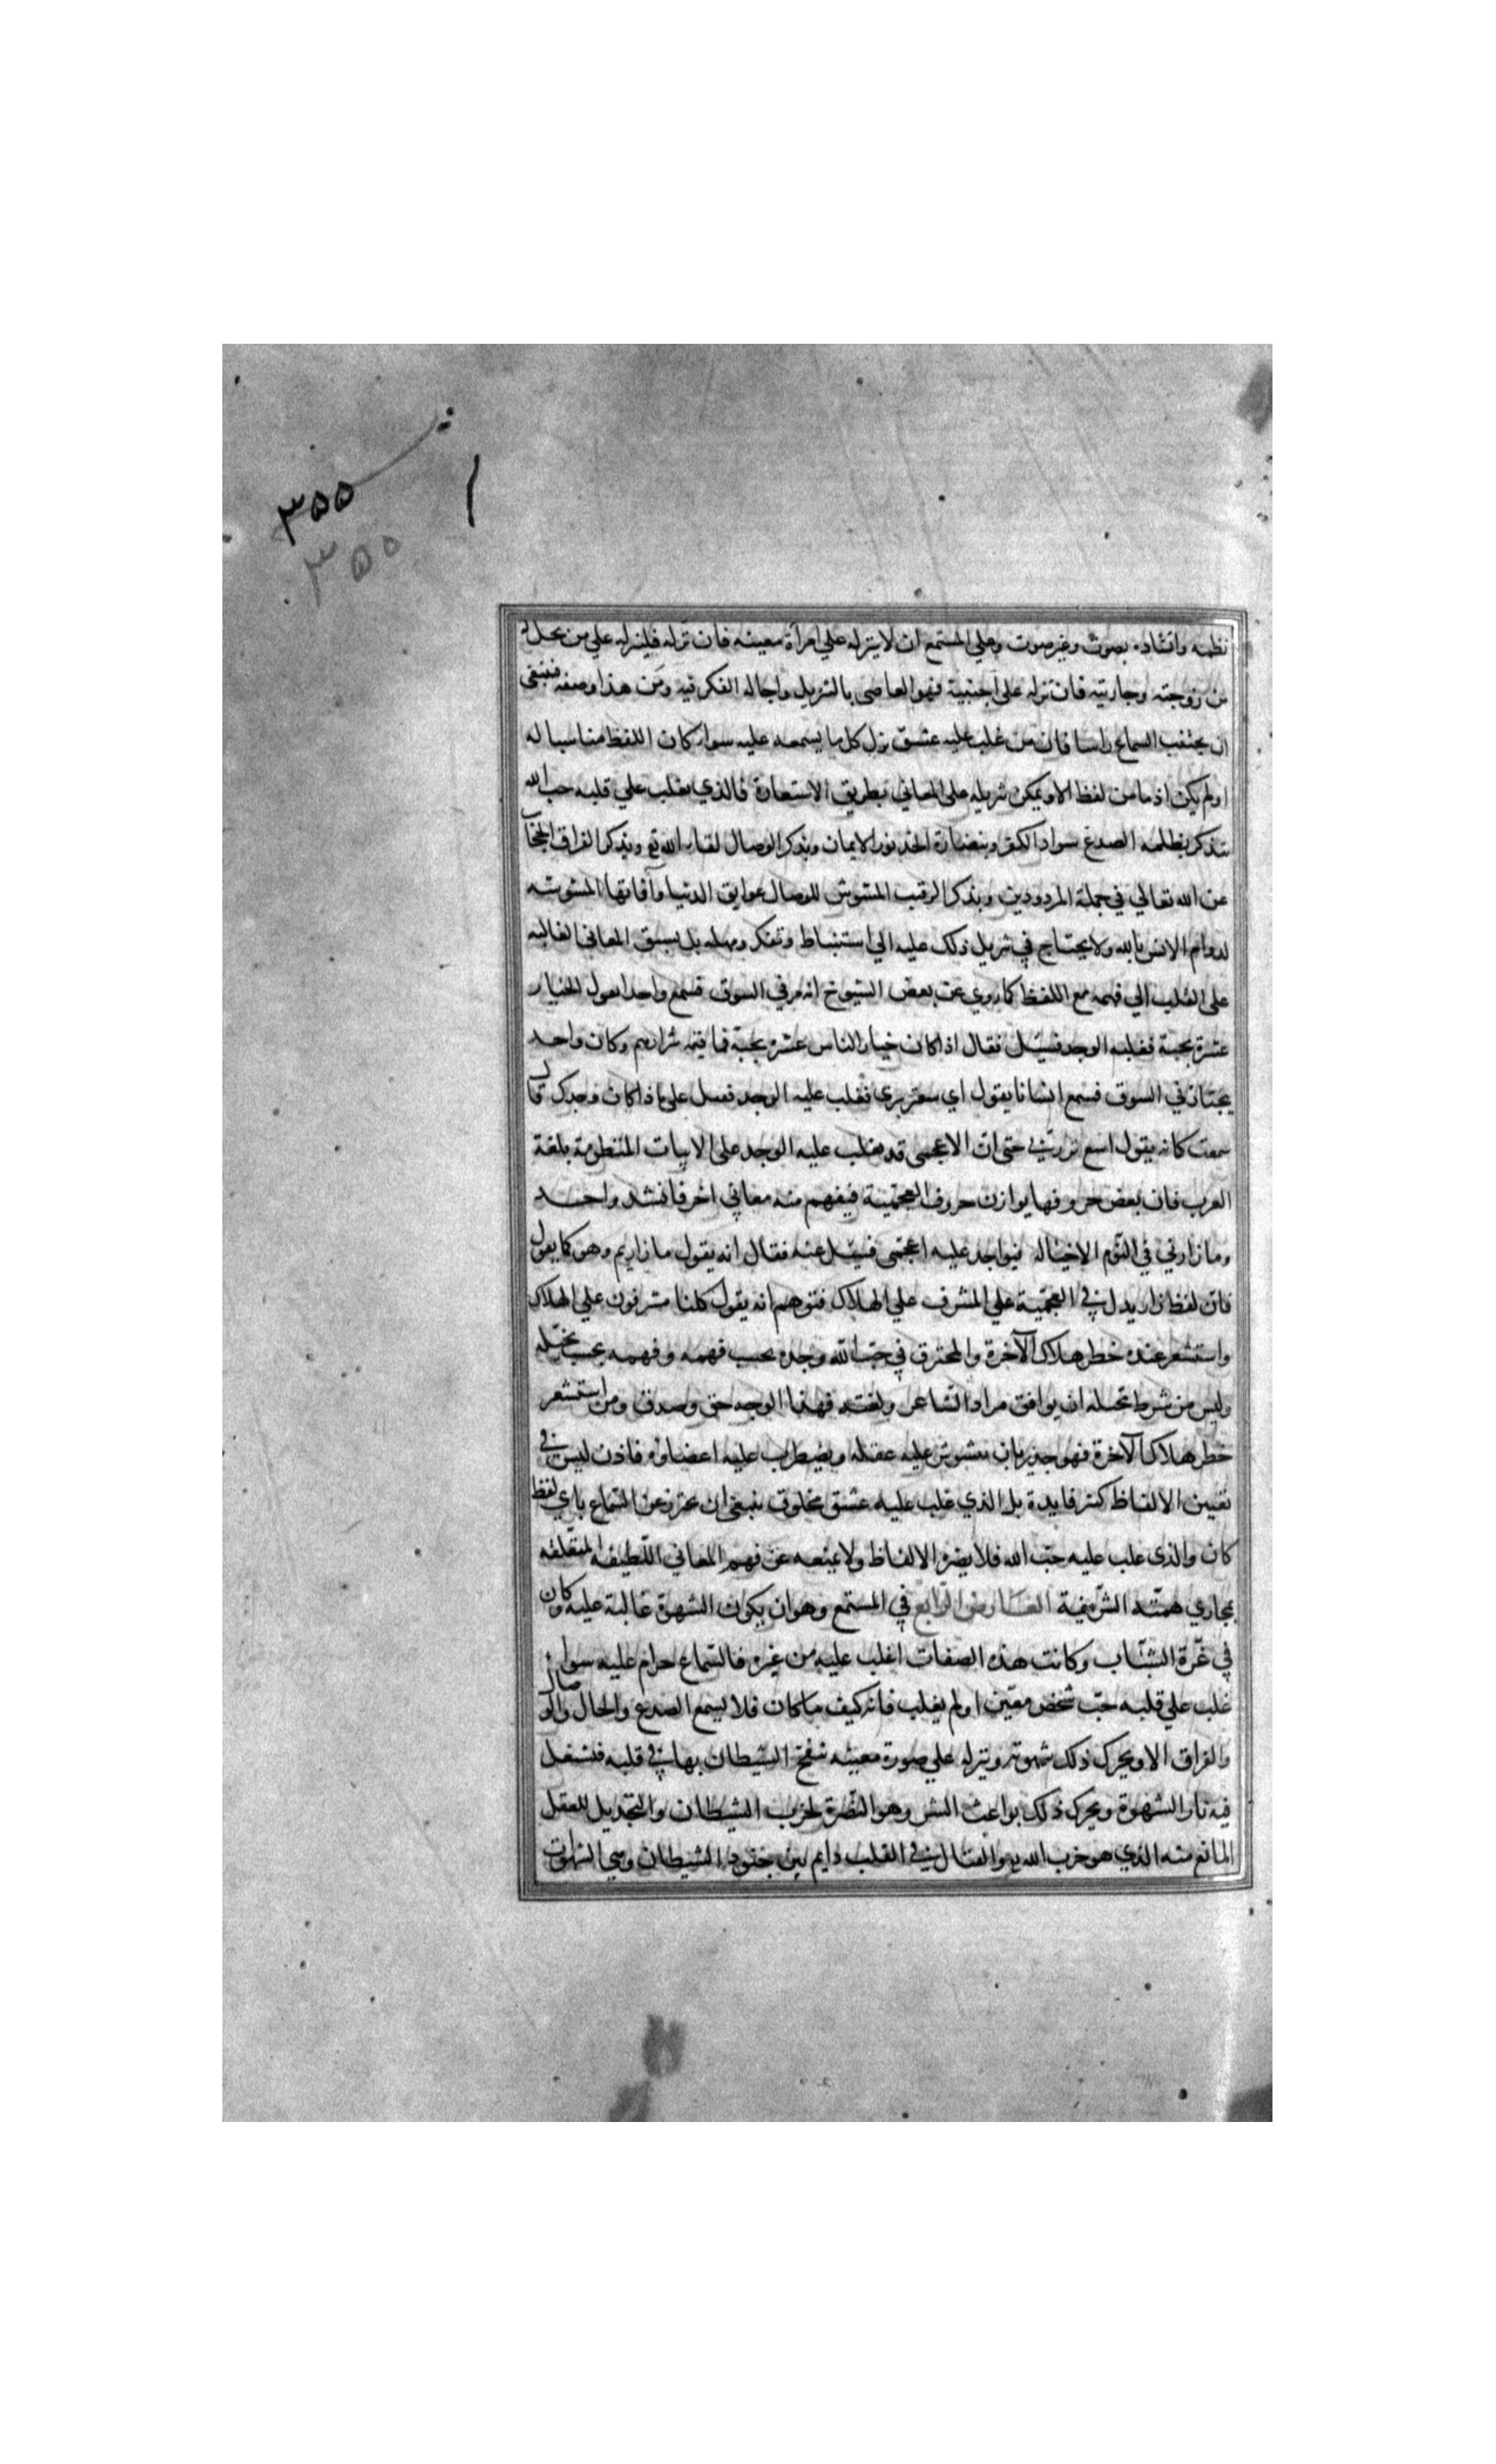 ٣٥٥
٣٥٥
نظمه وانشاده بصوت وغير صوت وعلى المستمع ان لا ينزله على امرأة معينه فان نزله فلينزله على من يحل له
من زوجته وجاريته فان نزله على اجنبية فهو العاصى بالتنزيل واجاله الفكر فيه ومن هذا وصفه فينبغى
ان يجتنب السماع راسا فان من غلب عليه عشق نزل كل ما يسمعه عليه سواء كان اللفظ مناسبا له
او لم يكن اذ ما من لفظ الا ويمكن تنزيله على المعاني بطريق الاستعارة فالذي يغلب على قلبه حب الله
يتذكر بظلمه الصدغ سواد الكفر وبنضارة الخد نور الايمان وبذكر الوصال لقاء الله تع وبذكر الفراق الحجاب
عن الله تعالي في جملة المردودين وبذكر الرقيب المشوش للوصال عوايق الدنيا وآفاتها المشوشه
لدوام الانس بالله ولا يحتاج في تنزيل ذلك عليه الي استنباط وتفكر ومهله بل يسبق المعاني الغالبه
على القلب الي فهمه مع اللفظ كما روي عن بعض الشيوخ انه مر في السوق فسمع واحدا يقول الخيار
عشرة بحبة فغلبه الوجد فسئل فقال اذا كان خيار الناس عشرة بحبة فما قيمه شرارهم وكان واحد
يجتاز في السوق فسمع انسانا يقول اي سعتر بري فغلب عليه الوجد فعل على ماذا كان وجدك قال
سمعت كانه يقول اسع تر بري حتى ان الاعجمى قد يغلب عليه الوجد على الابيات المنظومة بلغة
العرب فان بعض حروفها يوازن حروف العجمية فيفهم منه معاني اخر فانشد واحد
وما زارني في النوم الا خياله فيواجد عليه اعجمى فسئل عنه فقال انه يقول ما زاريم وهو كما يقول
فان لفظ زار يدل في العجمية علي المشرف علي الهلاك فتوهم انه يقول كلنا مشرفون علي الهلاك
واستشعر عنده خطر هلاك الآخرة والمحترق في حب الله وجده بحسب فهمه وفهمه بحسب تخيله
وليس من شرط تخيله ان يوافق مراد الشاعر ولغته فهذا الوجد حق وصدق ومن استشعر
خطر هلاك الآخرة فهو جدير بان يتشوش عليه عقله ويضطرب عليه اعضاؤه فاذن ليس في
تغيين الالفاظ كثير فايدة بل الذي غلب عليه عشق مخلوق ينبغي ان يحترز عن السماع باي لفظ
كان والذي غلب عليه حب الله فلا يضره الالفاظ ولا يمنعه عن فهم المعاني اللطيفه المتعلقه
بمجاري همته الشريفية العارض الرابع في المستمع وهو ان يكون الشهوة غالبة عليه وكان
في غرة الشباب وكانت هذه الصفات اغلب عليه من غيره فالسماع حرام عليه سواء
غلب على قلبه حب شخص معين او لم يغلب فانه كيف ما كان فلا يسمع الصدغ والخال والوصال
والفراق الا ويحرك ذلك شهوته وينزله علي صورة معينه ينفخ الشيطان بها في قلبه فتشتعل
فيه نار الشهوة ويحرك ذلك بواعث الشر وهو النصرة لحزب الشيطان والتخذيل للعقل
المانع منه الذي هو حزب الله والقتال في القلب دايم بين جنود الشيطان وهي الشهوات